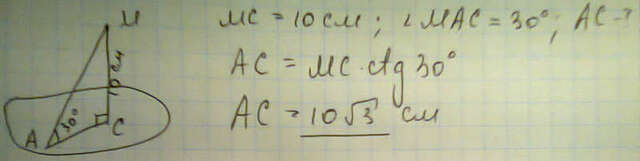 MC = 10 см ; ∠MAC = 30° ; AC - ?
AC = MC · ctg 30°
AC = 10√3 см
M
10 см
30°
A
C